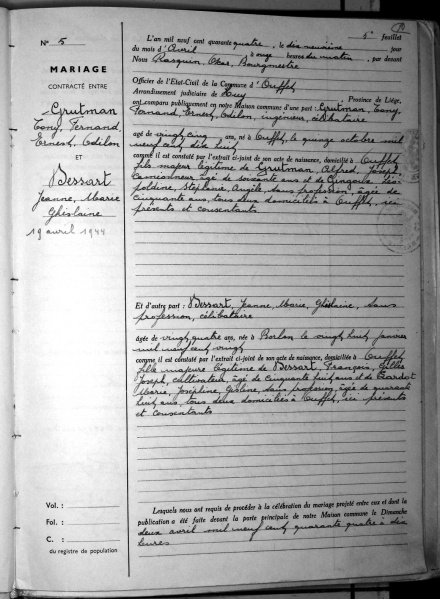 N° 5
MARIAGE
CONTRACTÉ ENTRE
Grutman
Tony, Fernand,
Ernest, Odilon
ET
Bessart
Jeanne, Marie
Ghislaine
19 avril 1944
Vol. :
Fol. :
C. :
du registre de population
5e feuillet
L'an mil neuf cent quarante quatre, le dix neuvième jour
du mois d'Avril à onze heures du matin, par devant
Nous Rasquin, Oscar, Bourgmestre
Officier de l'Etat-Civil de la Commune d'Ouffet
Arrondissement judiciaire de Huy Province de Liège,
ont comparu publiquement en notre Maison commune d'une part : Grutman, Tony,
Fernand, Ernest, Odilon, ingénieur, célibataire
âgé de vingt cinq ans, né à Ouffet, le quinze octobre mil
neuf cent dix huit
comme il est constaté par l'extrait ci-joint de son acte de naissance, domicilié à Ouffet
fils majeur légitime de Grutman, Alfred, Joseph,
camionneur, âgé de soixante ans et de Léo-
poldine, Stéphanie, Angèle, sans profession, âgée de
cinquante ans, tous deux domiciliés à Ouffet, ici
présents et consentants
Et d'autre part : Bessart, Jeanne, Marie, Ghislaine, sans
profession, célibataire
âgée de vingt quatre ans, née à Borlon le vingt huit janvier
mil neuf cent vingt
comme il est constaté par l'extrait ci-joint de son acte de naissance, domiciliée à Ouffet
fille majeure légitime de Bessart, François, Gilles
Joseph, cultivateur, âgé de cinquante huit ans et de
Marie, Joséphine, Gisline, sans profession, âgée de quarante
huit ans, tous deux domiciliés à Ouffet, ici présents
et consentants
Lesquels nous ont requis de procéder à la célébration du mariage projeté entre eux et dont la
publication a été faite devant la porte principale de notre Maison commune le Dimanche
deux avril mil neuf cent quarante quatre à dix
heures